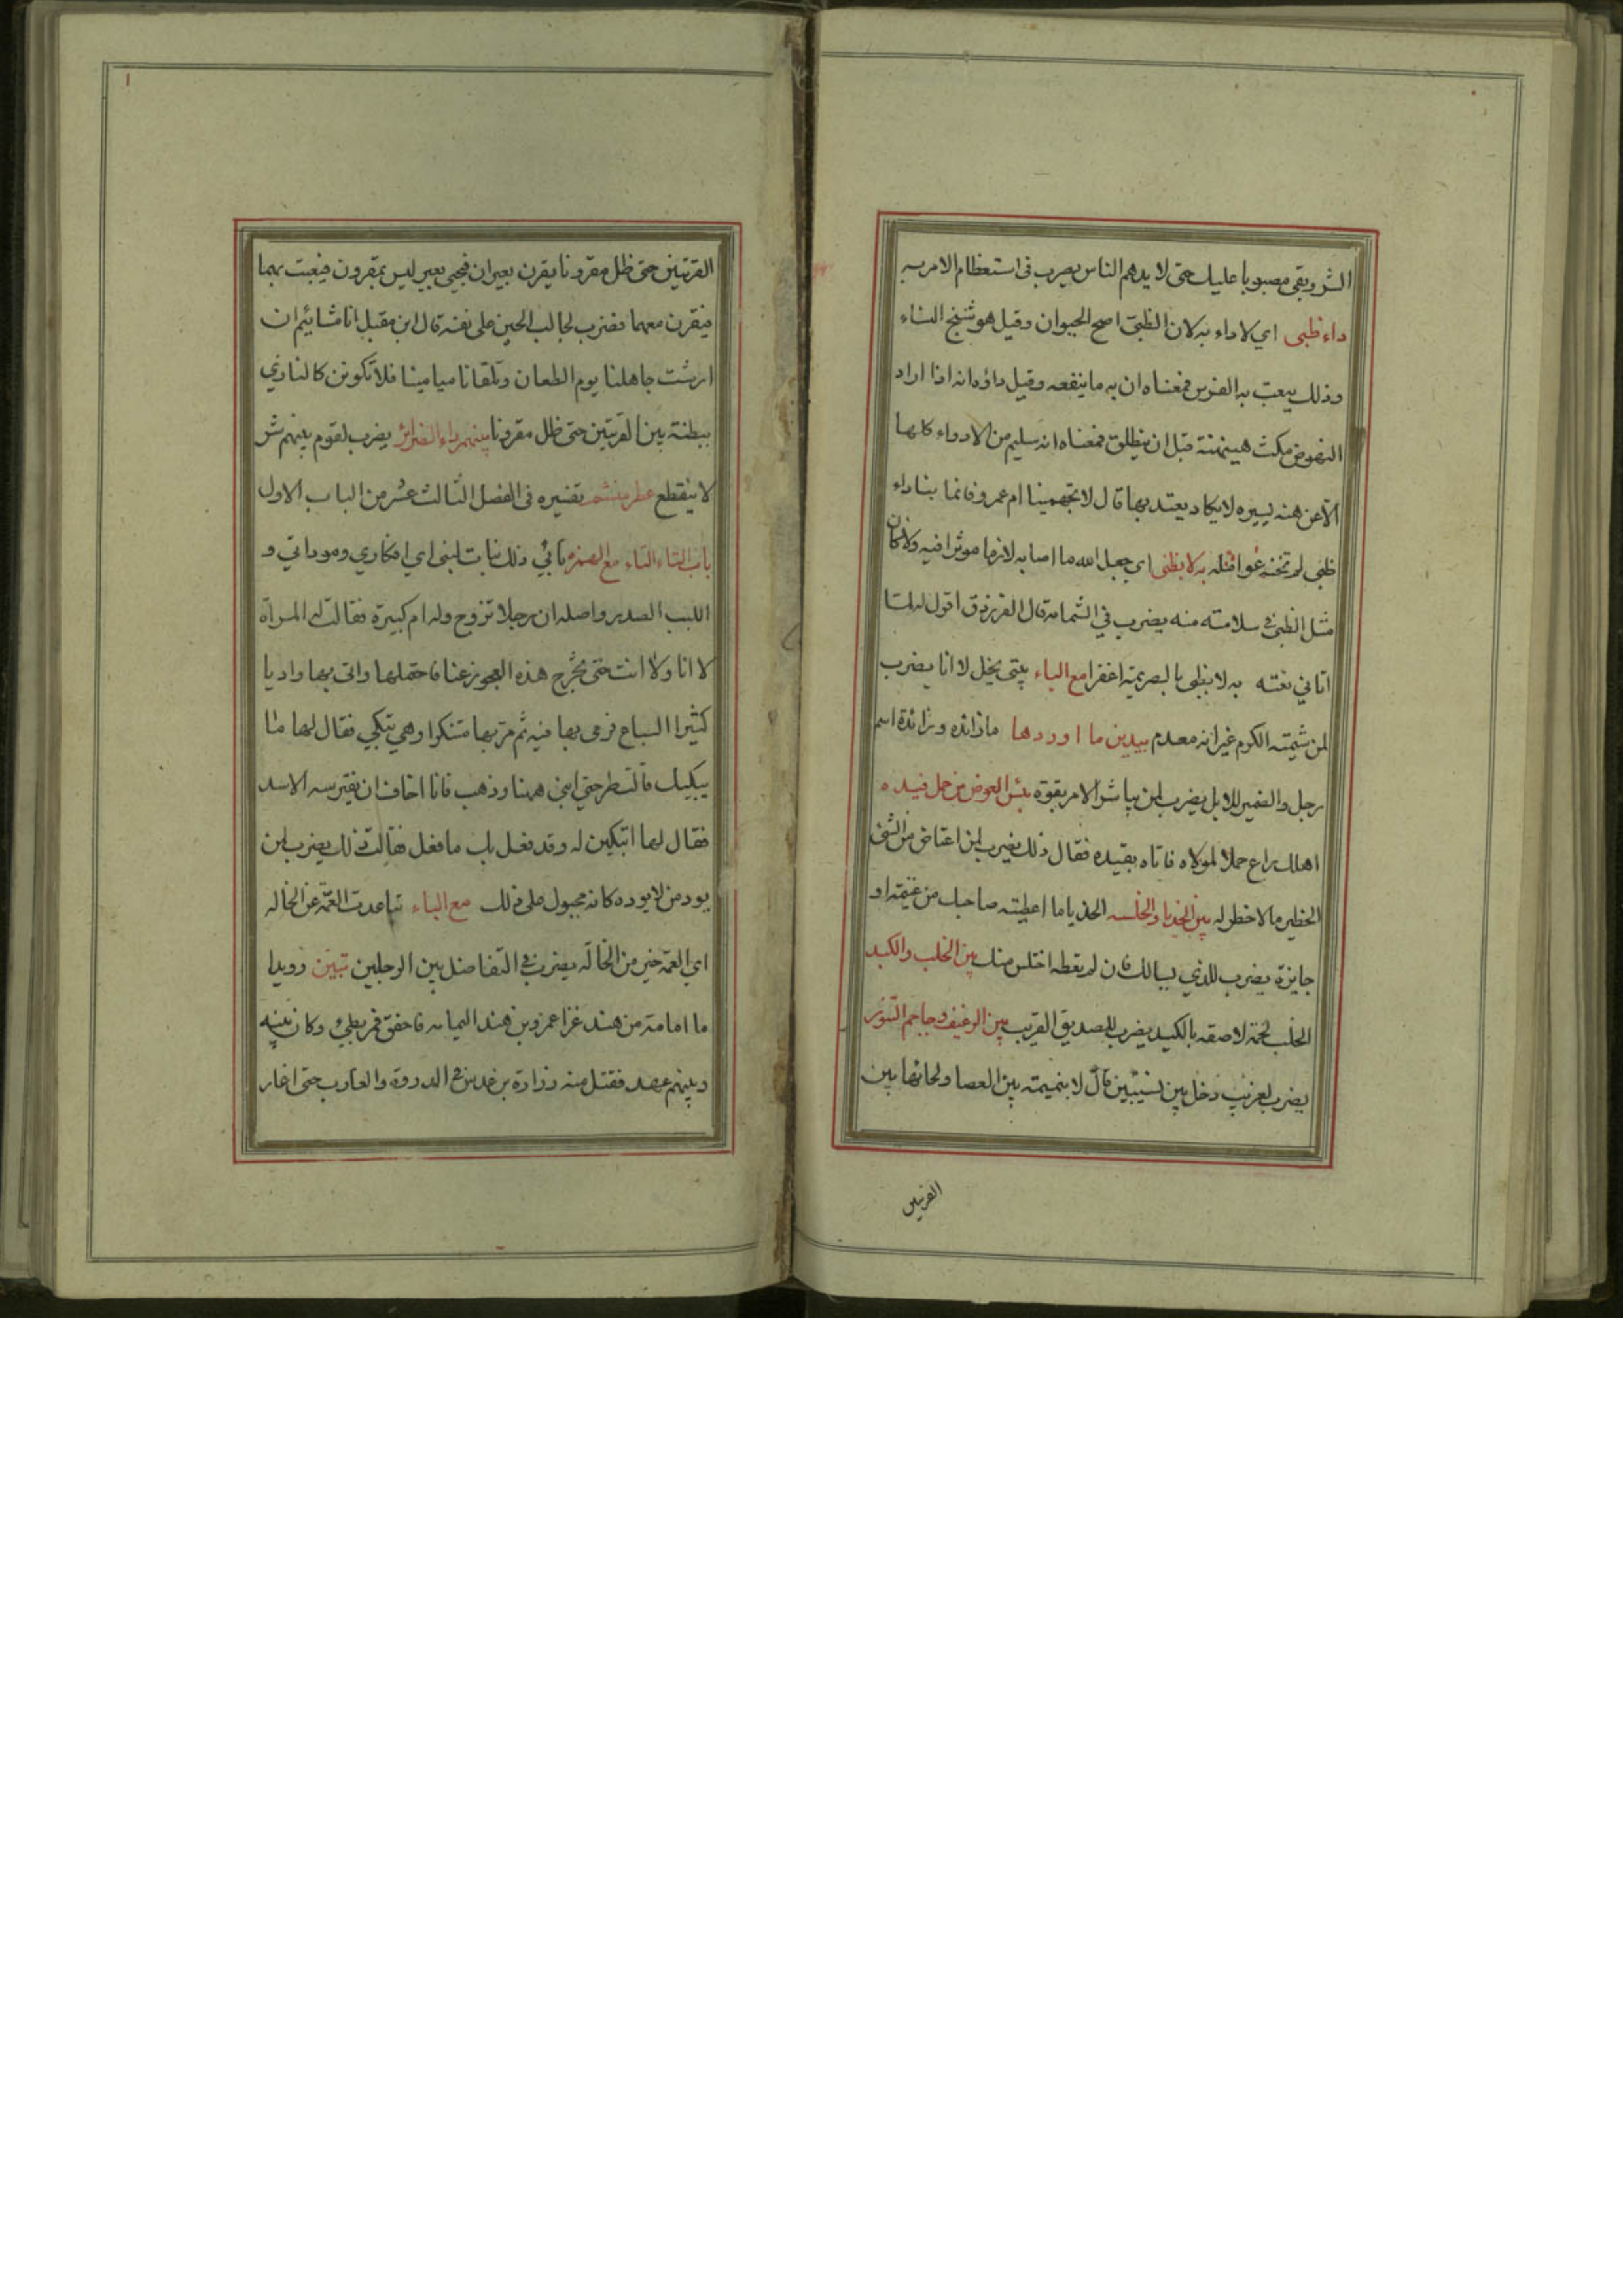 الشر ويبقى مصبوبا عليك حتى لا يدهم الناس يضرب فى استعظام الامر به
داء ظبى اي لا داء به لان الظبى اصح الحيوان وقيل هو شنج النساء
وذلك يعيب به الفرس فمعناه ان به ما ينفعه وقيل داؤه انه اذا اراد
النهوض مكث هنيهة قبل ان ينطلق فمعناه انه سليم من الادواء كلها
الا عن هنة يسيره لا يكاد يعتد بها قال لا تجهمينا ام عمرو فانما بنا داء
ظبى لم تخنه عوامله به لا بظبى اى جعل الله ما اصابه لازما موثرا فيه ولا كان
مثل الظبى فى سلامته منه يضرب في الشماتة قال الفرزدق اقول له لما
اتاني نعيه به لا بظبى بالصريمة اعفرا مع الباء بيتى يبخل لا انا يضرب
لمن شيمته الكرم غير انه معدم بيدين ما اوردها مازائده وزائدة اسم
رجل والضمير للابل يضرب لمن يباشر الامر بقوة بئس العوض من جمل قيده
اهلك راع جملا لمولاه فاتاه بقيده فقال ذلك يضرب لمن اعتاض من الشئ
الخطير ما لا خطر له بين الحذيا والخلسه الحذيا ما اعطيته صاحبك من غنيمة او
جايزة يضرب للذي يسالك فان لم يعطه اختلس منك بين الخلب والكبد
الخلب لحمة لاصقه بالكبد يضرب للصديق القريب بين الرغيف وجاحم التنور
يضرب لغريب دخل بين نسيبين قال لا بنميمته بين العصا ولحائها بين
القرنين
القرنين حتى ظل مقرونا يقرن بعيران فيجى بعير ليس بمقرون فيعبث بهما
فيقرن معهما فضرب لجالب الحين على نفسه قال ابن مقبل انا مشائيم ان
ارشت جاهلنا يوم الطعان وتلقانا ميامينا فلا تكونن كالنازي
ببطنته بين القرنين حتى ظل مقرونا بينهم داء الضرائر يضرب لقوم بينهم شر
لا ينقطع عطر منشم تفسيره فى الفصل الثالث عشر من الباب الاول
باب التاء التاء مع الهمزه تأبي ذلك بنات لببى اي افكاري ومودتي و
اللبب الصدر واصله ان رجلا تزوج وله ام كبيرة فقالت له المرأة
لا انا ولا انت حتى تخرج هذه العجوز عنا فاحتملها واتى بها واديا
كثير السباع فرمى بها فيه ثم مر بها متنكرا وهي تبكي فقال لها ما
يبكيك قالت طرحني ابني ههنا وذهب فانا اخاف ان يفترسه الاسد
فقال لها اتبكين له وقد فعل بك ما فعل فقالت ذلك يضرب لمن
يود من لا يوده كانه مجبول على ذلك مع الباء تباعدت العمة عن الخاله
اي العمة خير من الخالة يضرب فى التفاضل بين الرجلين تبين رويدا
ما امامة من هند غزا عمرو بن هند اليمامه فاخفق فمر بطيئ وكان بينه
وبينهم عهد فقتل منه زرارة بن عدس فى الذروة والغارب حتى اغار